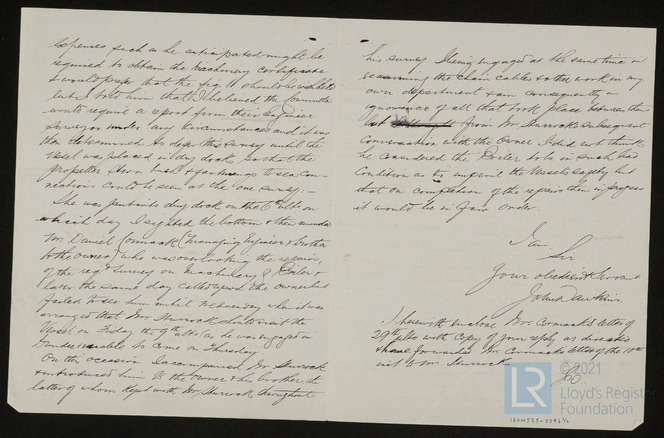 Expenses such as he anticipated might be
required to obtain the Machinery Certificate
I would propose that the fig. should be withheld
but I told him that I believed the Committee
would require a report from their Engineer
Surveyor under any circumstances and it was
then determined to defer this survey until the
Vessel was placed in dry dock so that the
propeller Stern bush & fastenings to sea con-
nections could be seen at the one survey:-
She was put into dry dock on the 6th ulto on
which day I sighted the bottom & then
Mr. Daniel Cormack (Managing Engineer & brother
to the owner) who was overlooking the repairs,
of the reqd Survey on Machinery & Boiler &
later the same day called upon the owner but
failed to see him until Wednesday when it was
arranged that Mr Sturrock should visit the
Vessel on Friday the 9th ulto (as he was engaged in
Dundee & unable to come on Thursday
On this occasion I accompanied Mr Sturrock
& introduced him to the owner & his brother the
latter of whom kept with Mr Sturrock throughout
his survey I being engaged at the same time in
examining the chain cables & other work in my
own department & am consequently in
ignorance of all that took place between them
but from Mr Sturrocks subsequent
Conversation with the Owner I did not think
he considered the Boiler to be in such bad
Condition as to imperil the Vessels Safety but
that on completion of the repairs then in progress
it would be in fair order.
I am
Sir
Your obedient Servant
John Dawkins
I herewith enclose Mr. Cormack's letter of
29th ulto with Copy of your reply as desired
& have forwarded Mr Cormacks letter of the 10th
inst to Mr Sturrock
JD
© 2021
LR
Lloyd's Register
Foundation